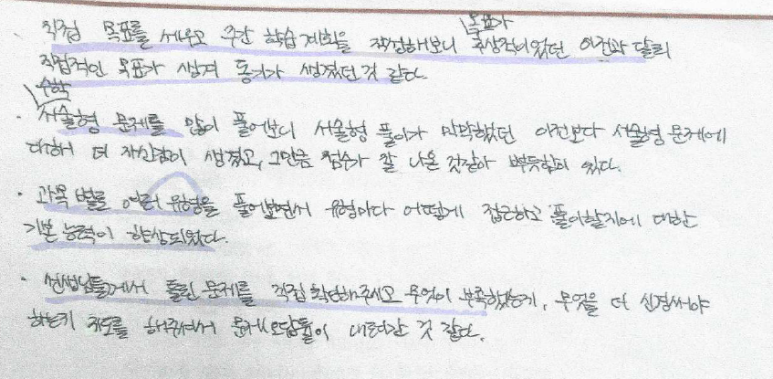 목표가
직접 목표를 세우고 주간 학습 계획을 작성해보니 추상적이었던 이전과 달리
직접적인 목표가 생겨 동기가 생겼던 것 같다.
수학
· 서술형 문제를 많이 풀어보니 서술형 풀이가 막막했던 이전보다 서술형 문제에
대해 더 자신감이 생겼고, 그만큼 점수가 잘 나온 것같아 뿌듯함이 있다.
· 과목 별로 여러 유형을 풀어보면서 유형마다 어떻게 접근하고 풀어야할지에 대한
기본 능력이 향상되었다.
· 선생님들께서 틀린 문제를 직접 확인해주시고 무엇이 부족했는지, 무엇을 더 신경써야
하는지 지도를 해주셔서 문제 오답률이 내려간 것 같다.